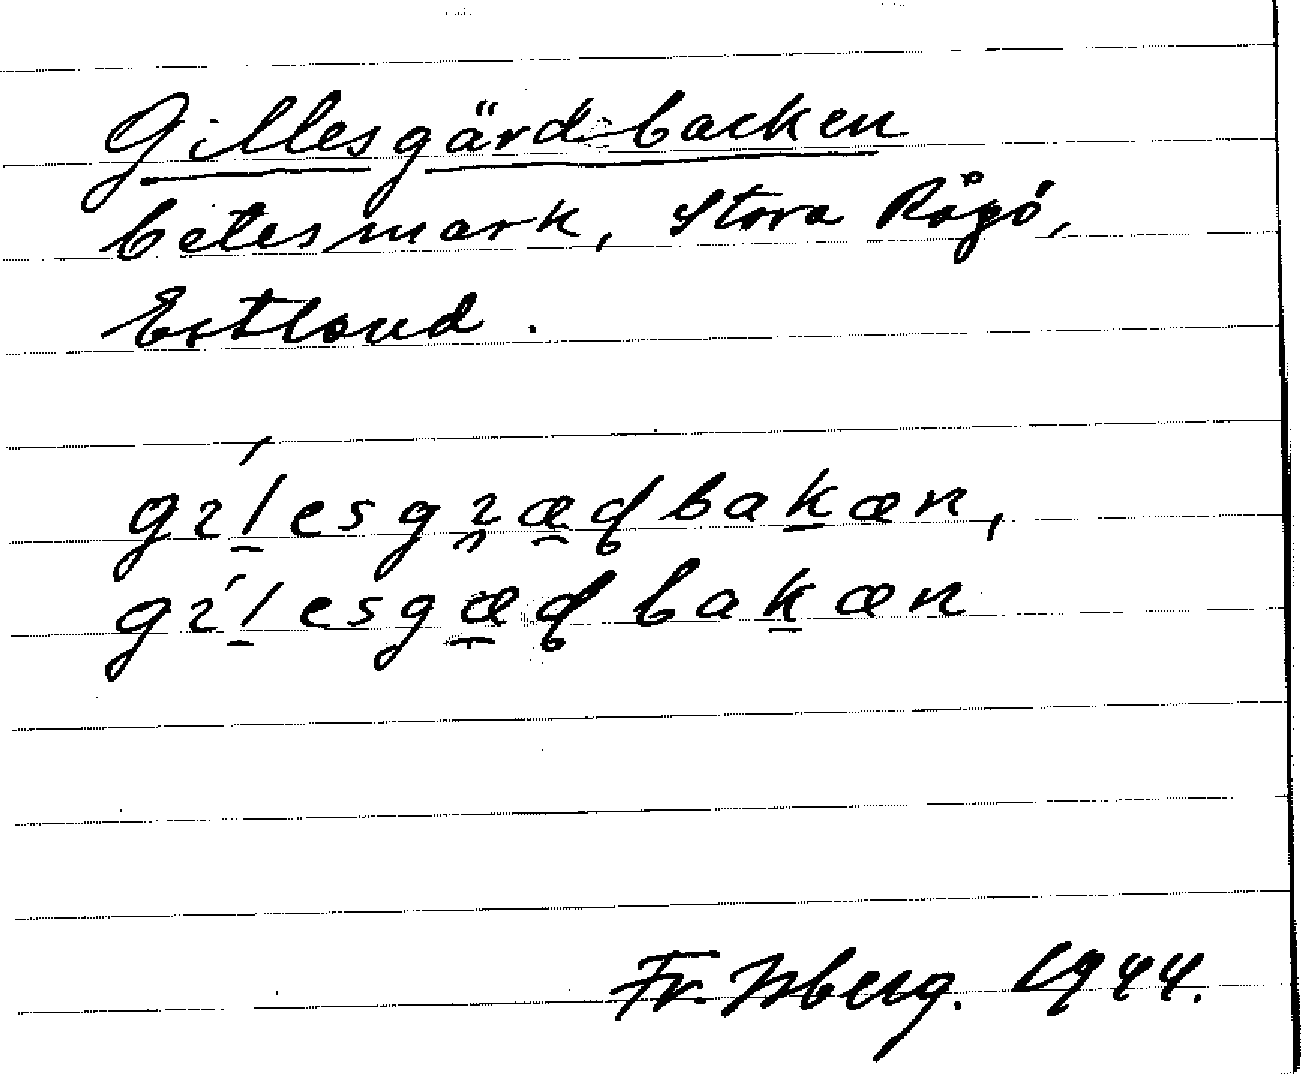 Gillesgärdbacken
betesmark, Stora Rågö,
Estland.
gɩ́l̠esgɩ̯æ̠ɖbak̠æn,
gɩ́l̠esgæ̠ɖbak̠æn
Fr. Isberg. 1944.